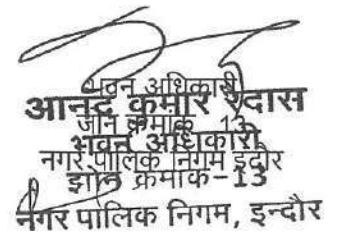 भवन अधिकारी
आनंद कुमार रैदास
जोन क्रमांक 13
भवन अधिकारी
नगर पालिक निगम इंदौर
झोन क्रमांक-13
नगर पालिक निगम, इन्दौर